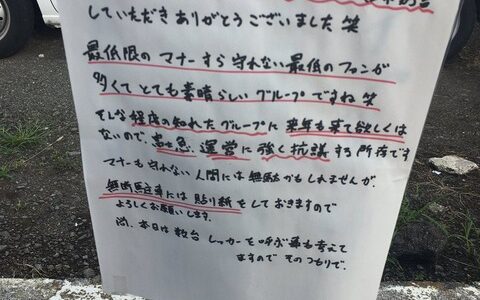 していただきありがとうございました笑
最低限のマナーすら守れない最低のファンが
多くてとても素晴らしいグループですね笑
そんな程度の知れたグループに来年も来て欲しくは
ないので、富士急、運営に強く抗議する所存です
マナーも守れない人間には無駄かもしれませんが、
無断駐車には貼り紙をしておきますので
よろしくお願いします。
尚、本日は数台レッカーを呼ぶ事も考えて
ますのでそのつもりで。